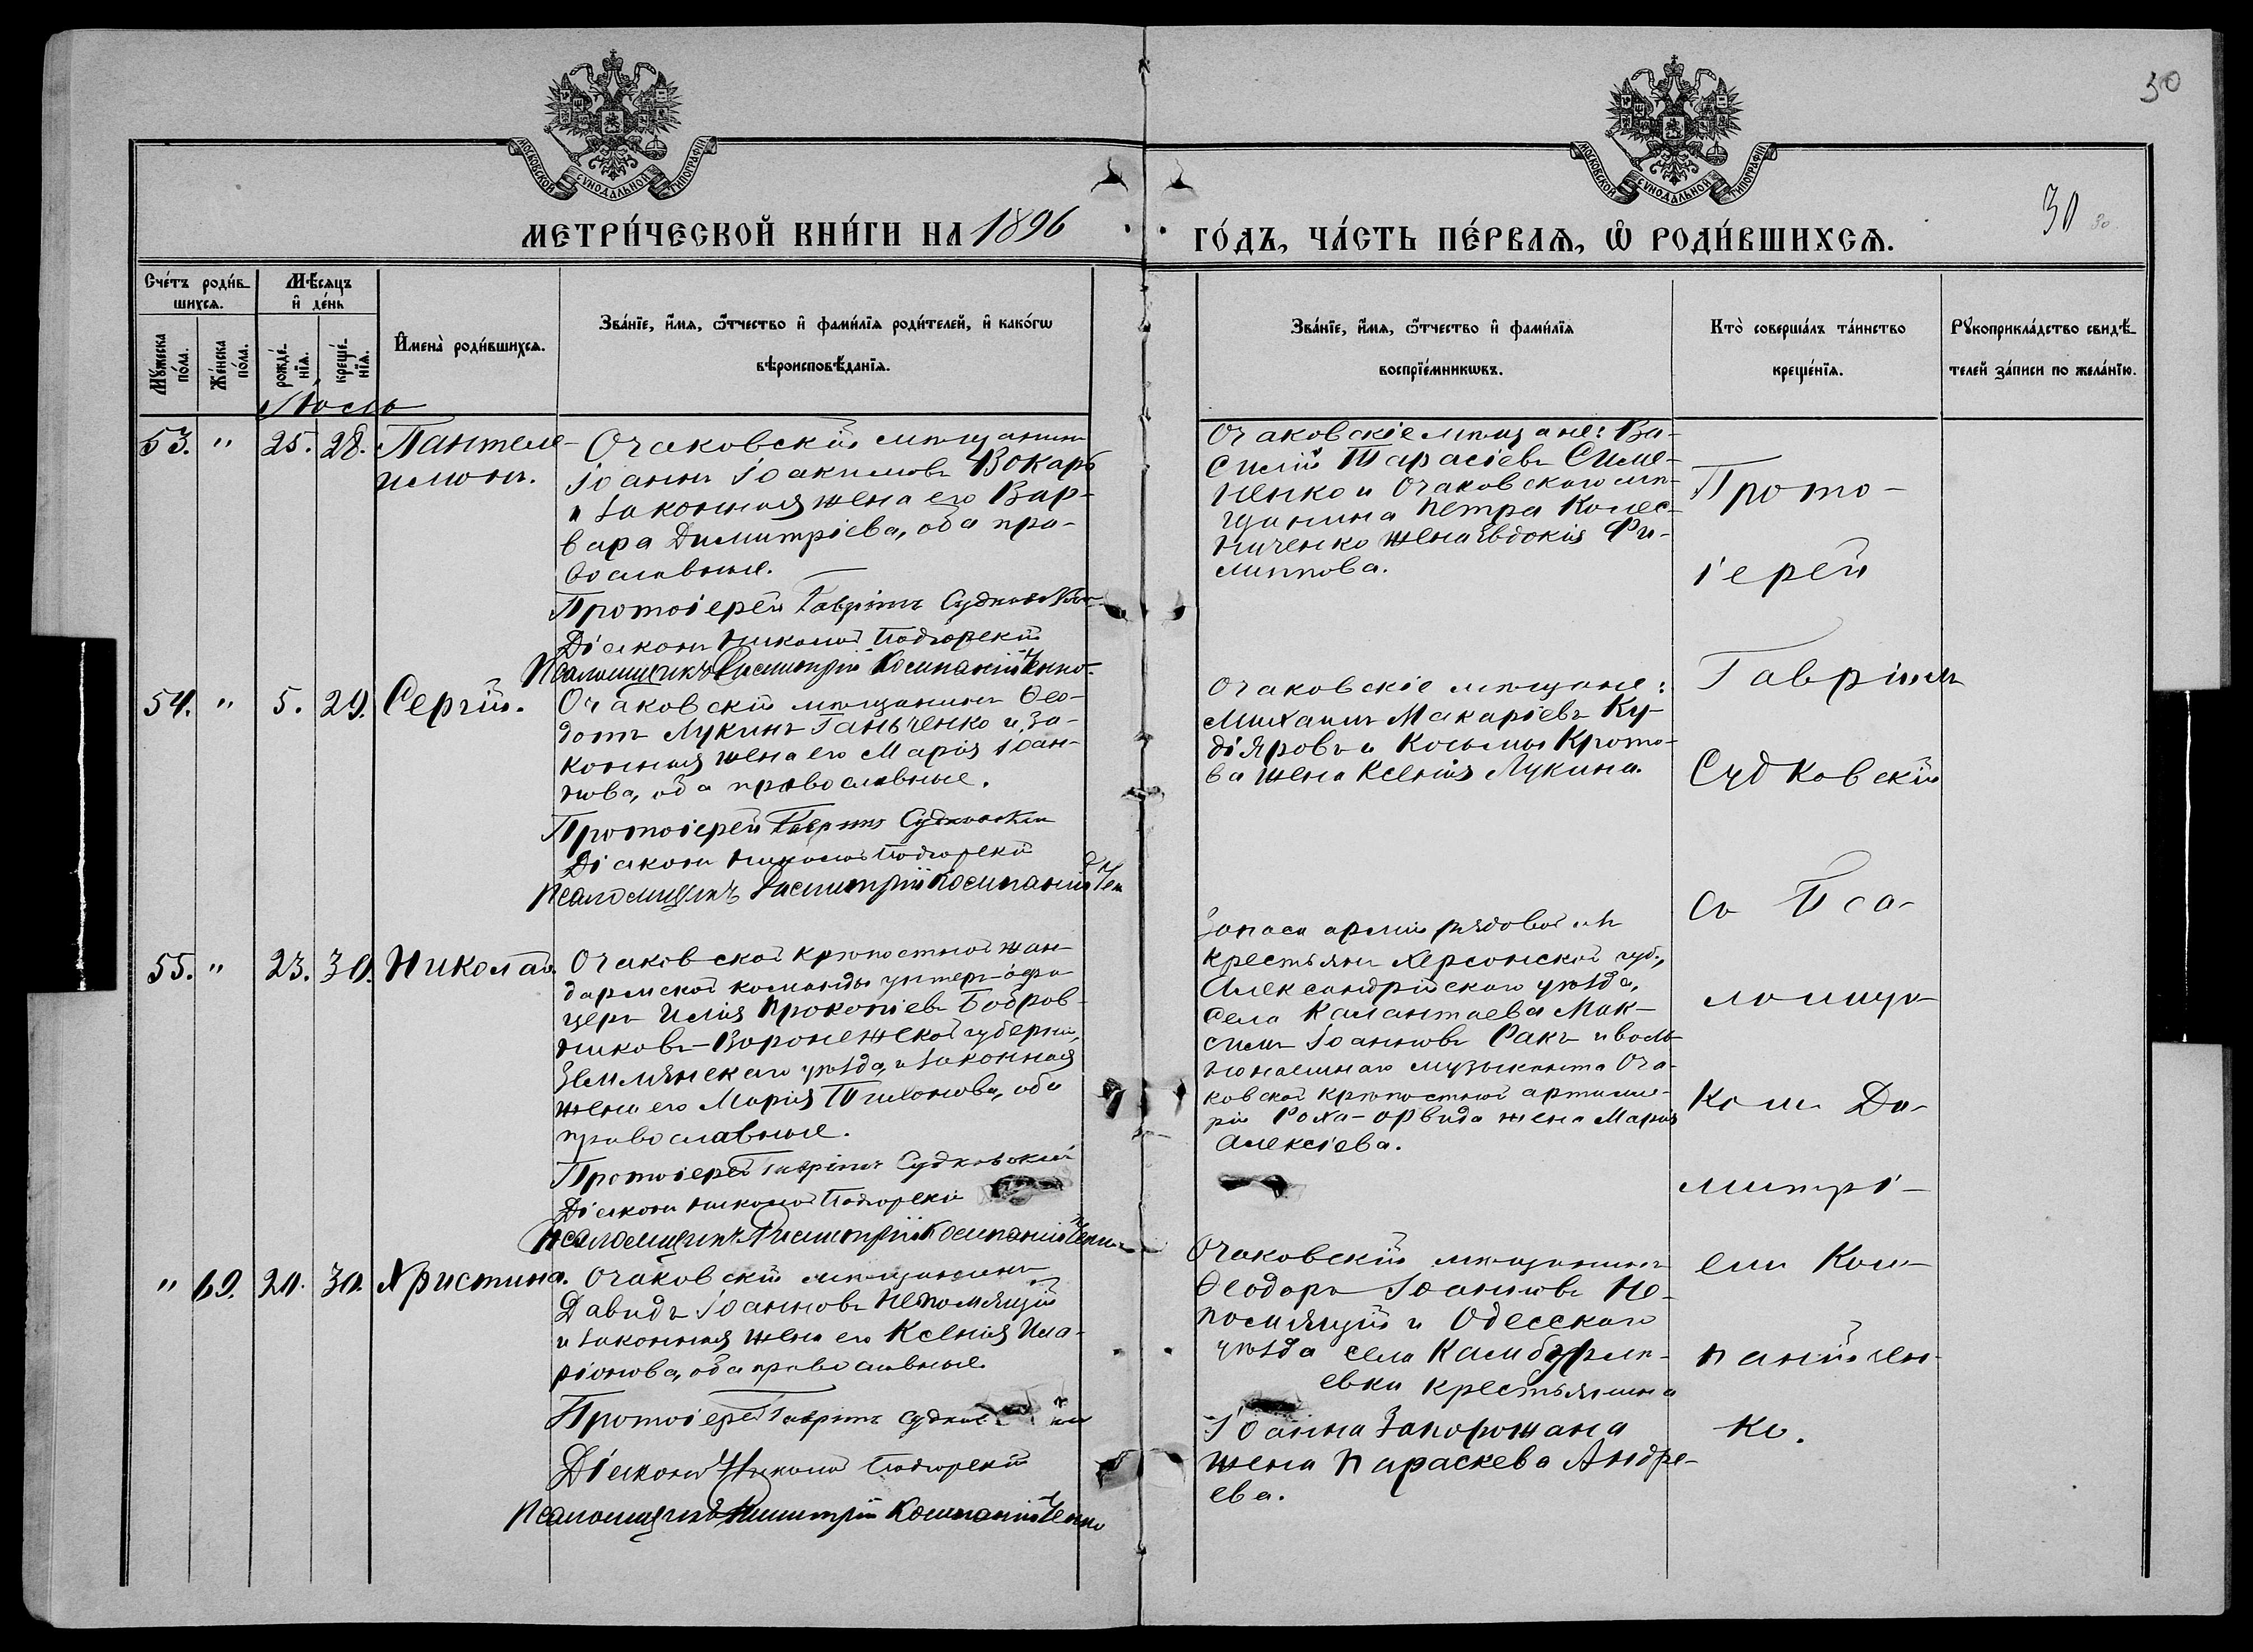 30
МОСКОВСКОЙ СѴНОДАЛЬНОЙ ТИПОГРАФІИ
МОСКОВСКОЙ СѴНОДАЛЬНОЙ ТИПОГРАФІИ
МЕТРИ́ЧЕСКОЙ КНИ́ГИ НА 1896
ГО́ДЪ, ЧА́СТЬ ПЕ́РВАѦ, Ѡ҆ РОДИ́ВШИХСѦ.
30 30.
Сче́тъ роди́в-
шихсѧ.
Мꙋжеска по́ла.
Же́нска по́ла.
Мѣ́сѧцъ
и҆ де́нь
рожде́-
нїѧ.
креще́-
нїѧ.
И҆мена̀ роди́вшихсѧ.
Зва́нїе, и҆́мѧ, ѻ҆́тчество и҆ фами́лїѧ роди́телей, и҆ како́гѡ
вѣроисповѣ́данїѧ.
Зва́нїе, и҆́мѧ, ѻ҆́тчество и҆ фами́лїѧ
воспрїе́мникѡвъ.
Кто̀ соверша́лъ та́инство
креще́нїѧ.
Рꙋкоприкла́дство свидѣ́-
телей за́писи по жела́нїю.
53. " 25. 28. Пантеле-
имонъ.
Очаковскій мѣщанинъ
Іоаннъ Іоакимовъ Вокарь
и законная жена его Вар-
вара Димитріева, оба пра-
вославные.
Протоіерей Гавріилъ Судковскій
Діаконъ Николай Подгорскій
Псаломщикъ Димитрій Компанійченко
Очаковскіе мѣщане: Ва-
силій Тарасіевъ Симе-
ненко и Очаковскаго мѣ-
щанина Петра Колес-
ниченко жена Евдокія Фи-
липпова.
54. " 5. 29. Сергій.
Очаковскій мѣщанинъ Ѳео-
дотъ Лукинъ Ганьченко и за-
конная жена его Марія Іоан-
нова, оба православные.
Протоіерей Гавріилъ Судковскій
Діаконъ Николай Подгорскій
Псаломщикъ Димитрій Компанійчен
Очаковскіе мѣщане:
Михаилъ Макаріевъ Ку-
діяровъ и Косьмы Крото-
ва жена Ксенія Лукина.
55. " 23. 30. Николай.
Очаковской крѣпостной жан-
дармской команды унтеръ-офи-
церъ Илія Прокопіевъ Бобров-
никовъ-Воронежской губерніи,
Землянскаго уѣзда, и законная
жена его Марія Тихонова, оба
православные.
Протоіерей Гавріилъ Судковскій
Діаконъ Николай Подгорскій
Псаломщикъ Димитрій Компанійченко
Запаса арміи рядовой изъ
крестьянъ Херсонской губ.,
Александрійскаго уѣзда,
села Калантаева Мак-
симъ Іоанновъ Ракъ и воль-
нонаемнаго музыканта Оча-
ковской крѣпостной артилле-
ріи Роха-Орвида жена Марія
Алексіева.
" 69. 20. 30. Христина.
Очаковскій мѣщанинъ
Давидъ Іоанновъ Непомнящій
и законная жена его Ксенія Ила-
ріонова, оба православные.
Протоіерей Гавріилъ Судков
Діаконъ Николай Подгорскій
Псаломщикъ Димитрій Компанійченко
Очаковскій мѣщанинъ
Ѳеодоръ Іоанновъ Не-
помнящій и Одесскаго
уѣзда села Камбурли-
евки крестьянина
Іоанна Запорожана
жена Параскева Андре-
ева.
Прото-
іерей
Гавріилъ
Судковскій
съ Пса-
ломщи-
комъ Ди-
митрі-
емъ Ком-
панійчен-
ко.